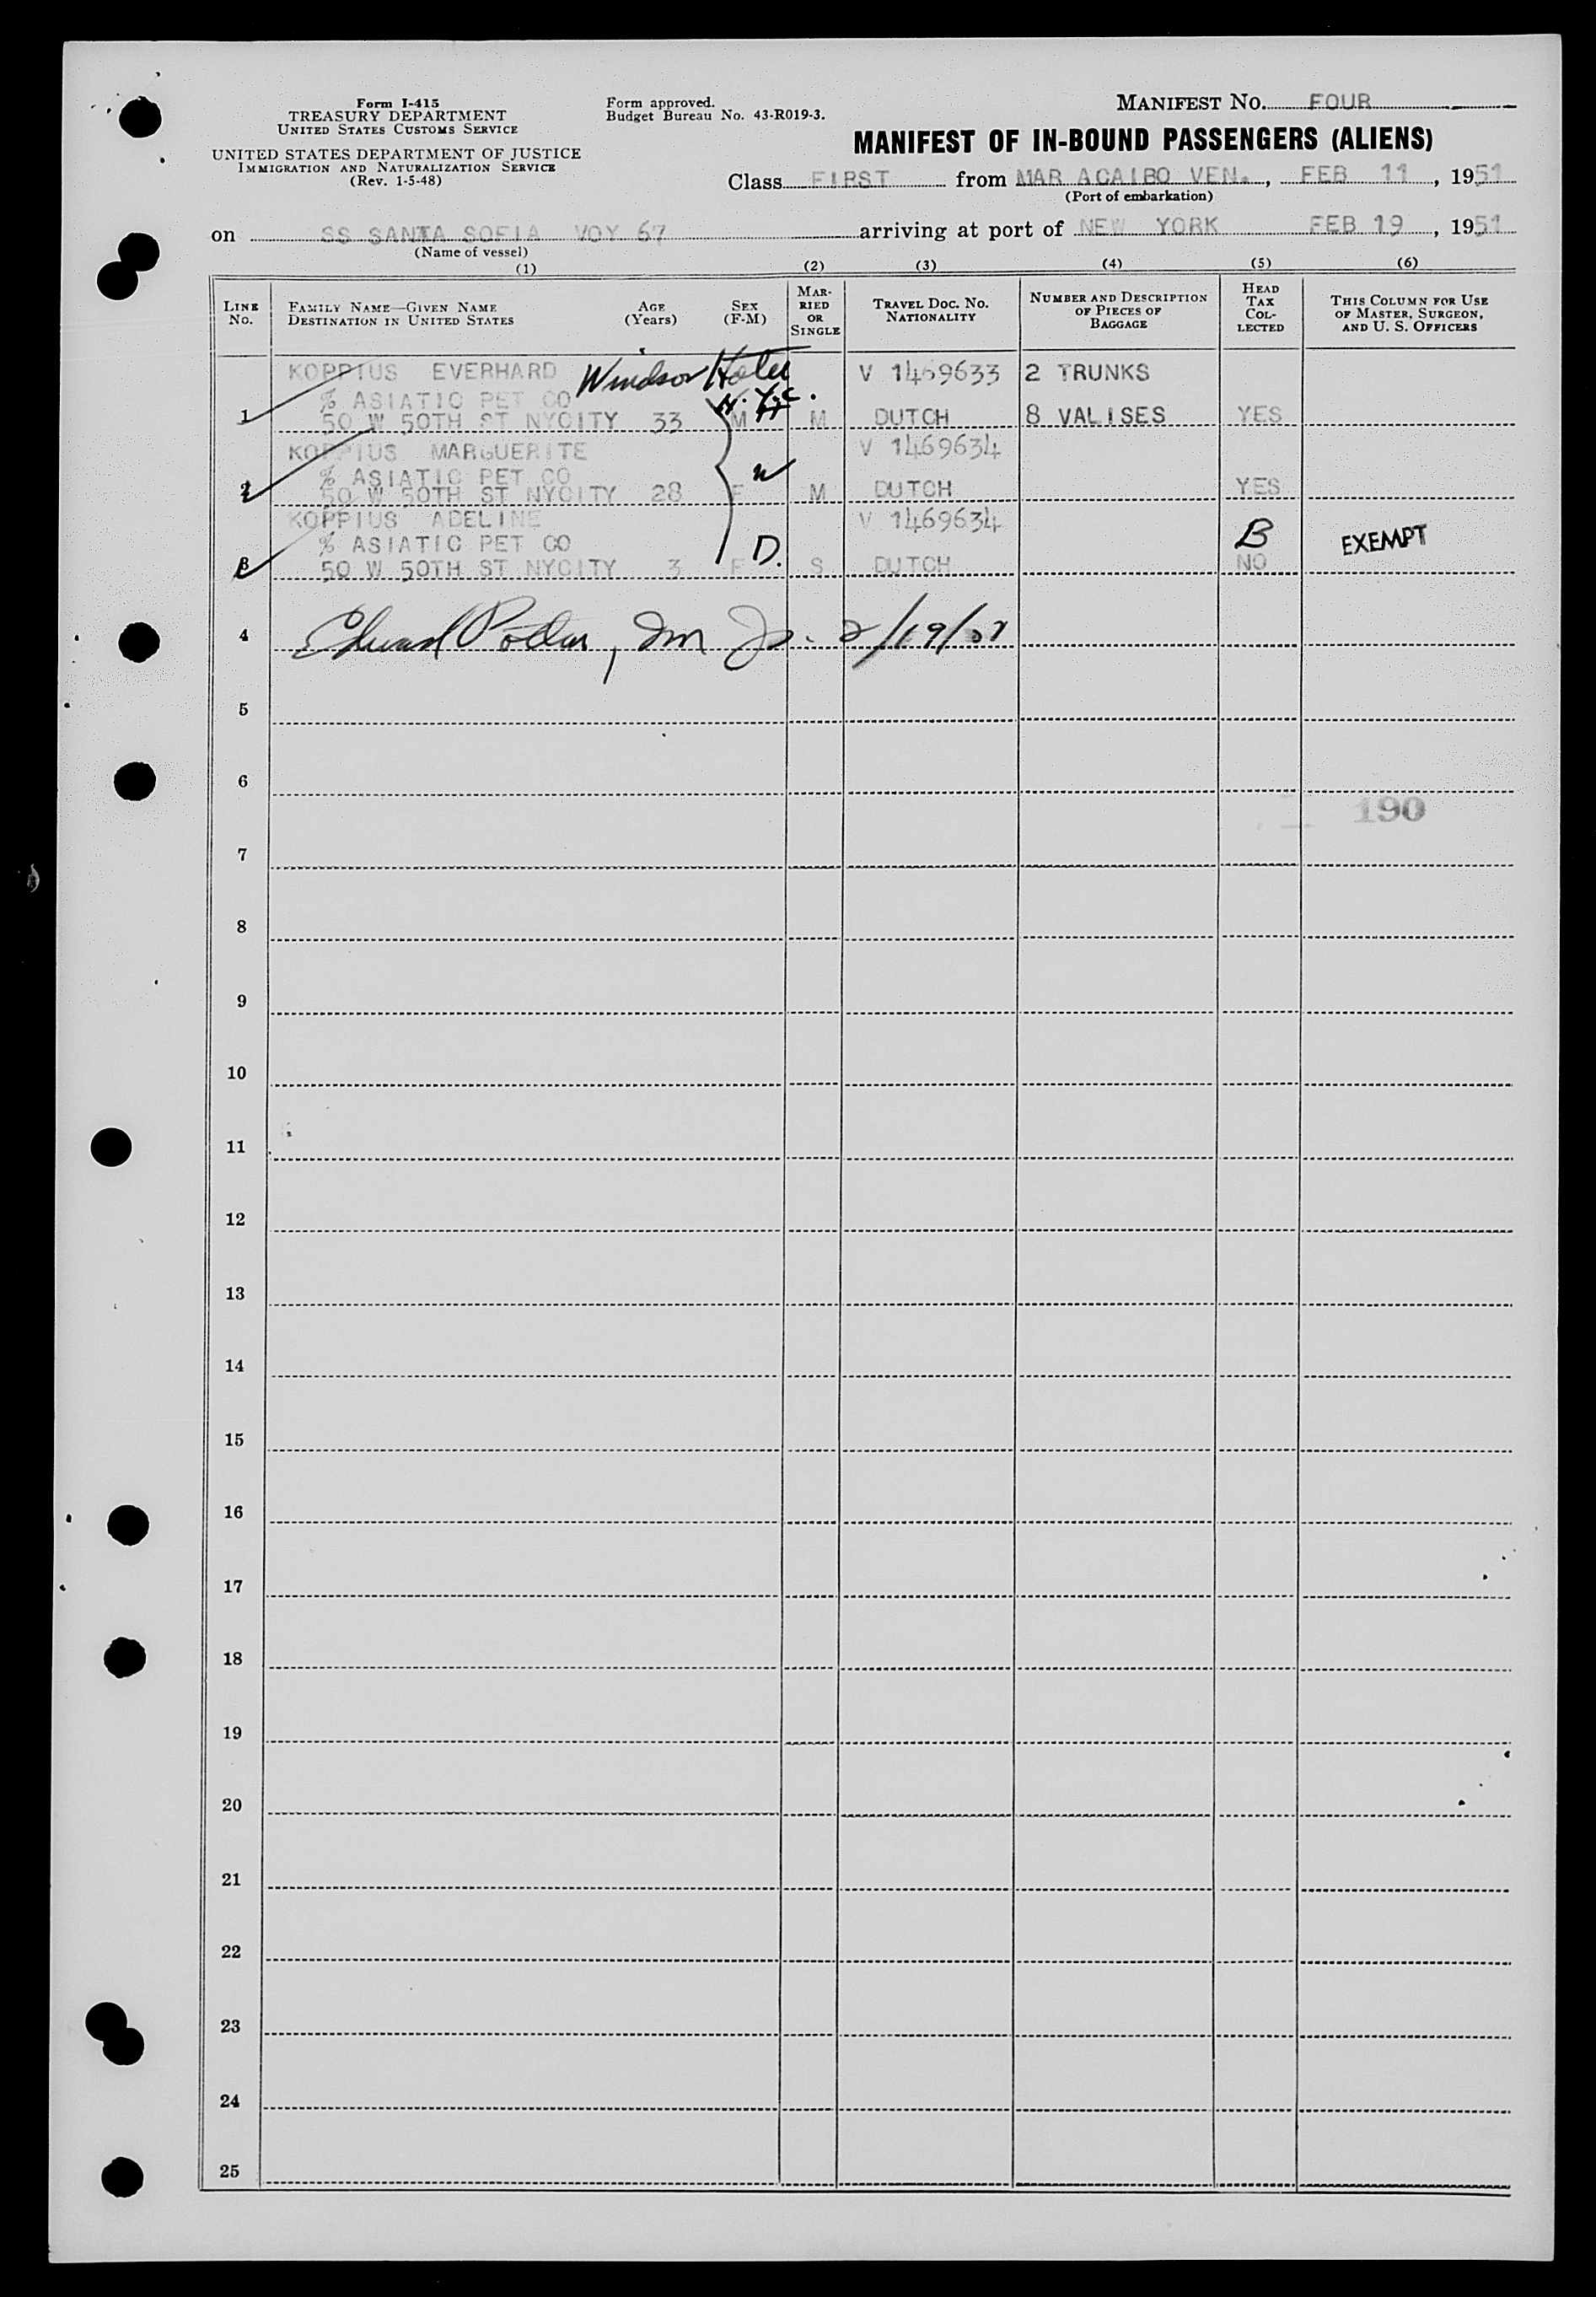 Form I-415
TREASURY DEPARTMENT
UNITED STATES CUSTOMS SERVICE
UNITED STATES DEPARTMENT OF JUSTICE
IMMIGRATION AND NATURALIZATION SERVICE
(Rev. 1-5-48)
Form approved.
Budget Bureau No. 43-R019-3.
MANIFEST NO. FOUR
MANIFEST OF IN-BOUND PASSENGERS (ALIENS)
Class FIRST from MAR ACAIBO VEN., FEB 11, 1951
(Port of embarkation)
on SS SANTA SOFIA VOY 67 arriving at port of NEW YORK FEB 19, 1951
(Name of vessel)
(1) (2) (3) (4) (5) (6)
LINE No.
FAMILY NAME—GIVEN NAME
DESTINATION IN UNITED STATES
AGE (Years)
SEX (F-M)
MARRIED OR SINGLE
TRAVEL DOC. NO. NATIONALITY
NUMBER AND DESCRIPTION OF PIECES OF BAGGAGE
HEAD TAX COLLECTED
THIS COLUMN FOR USE OF MASTER, SURGEON, AND U. S. OFFICERS
KOPPIUS EVERHARD Windsor Hotel V 1469633 2 TRUNKS
% ASIATIC PET CO N.Y.C.
1 50 W 50TH ST NYCITY 33 M H M DUTCH 8 VALISES YES
KOPPIUS MARGUERITE V 1469634
% ASIATIC PET CO W
2 50 W 50TH ST NYCITY 28 F M DUTCH YES
KOPPIUS ADELINE V 1469634
% ASIATIC PET CO D. B EXEMPT
3 50 W 50TH ST NYCITY 3 F S DUTCH NO
4 2/19/51
5
6
190
7
8
9
10
11
12
13
14
15
16
17
18
19
20
21
22
23
24
25